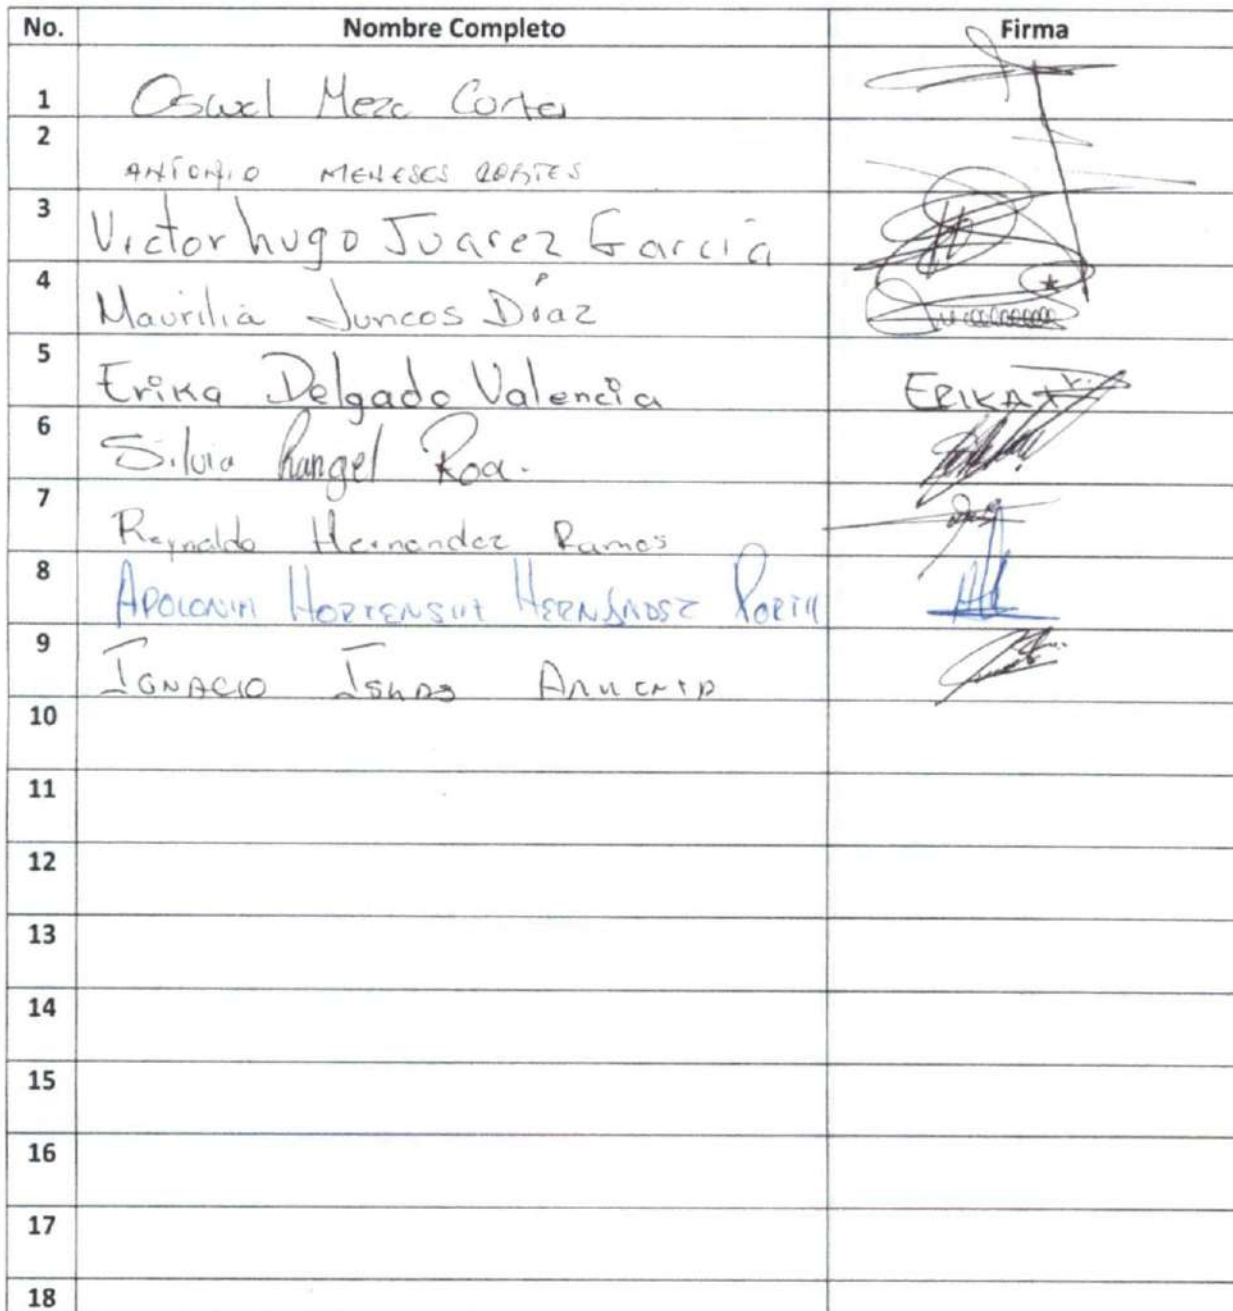 No. Nombre Completo Firma
1 Oswel Meza Cortes
2 ANTONIO MENESES CORTES
3 Victor hugo Juarez Garcia
4 Maurilia Juncos Díaz
5 Erika Delgado Valencia ERIKA
6 Silvia Rangel Roa.
7 Reynaldo Hernandez Ramos
8 APOLONIA HORTENSIA HERNÁNDEZ
9 IGNACIO
10
11
12
13
14
15
16
17
18